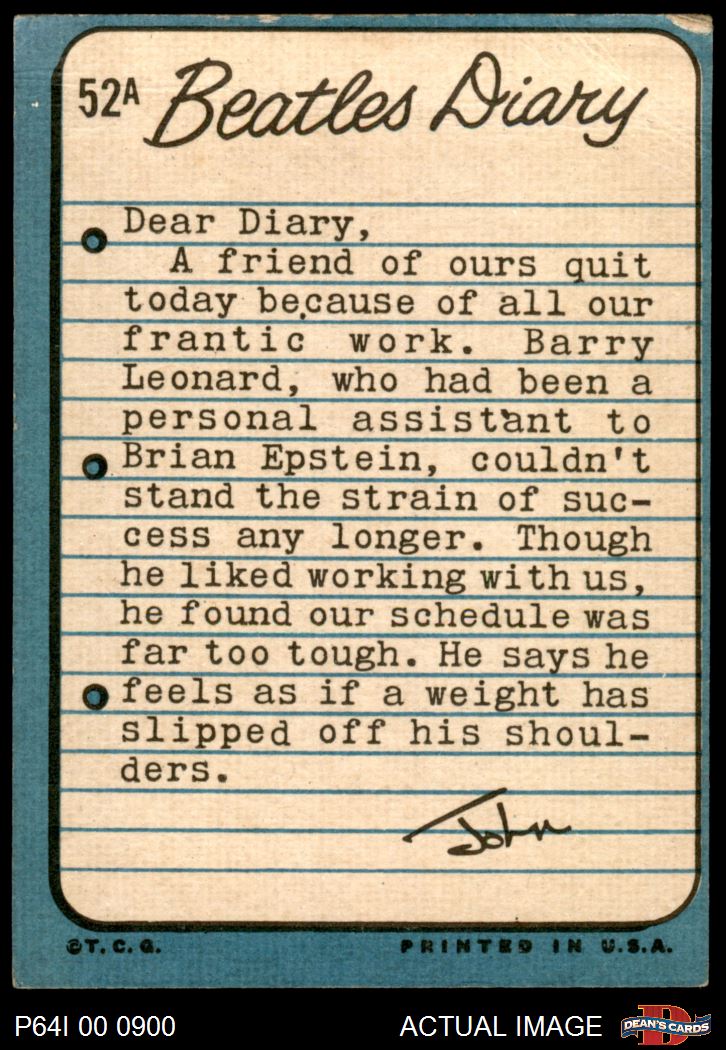 52A Beatles Diary
Dear Diary,
A friend of ours quit
today because of all our
frantic work. Barry
Leonard, who had been a
personal assistant to
Brian Epstein, couldn't
stand the strain of suc-
cess any longer. Though
he liked working with us,
he found our schedule was
far too tough. He says he
feels as if a weight has
slipped off his shoul-
ders.
John
©T.C.G. PRINTED IN U.S.A.
P64I 00 0900 ACTUAL IMAGE D DEAN'S CARDS